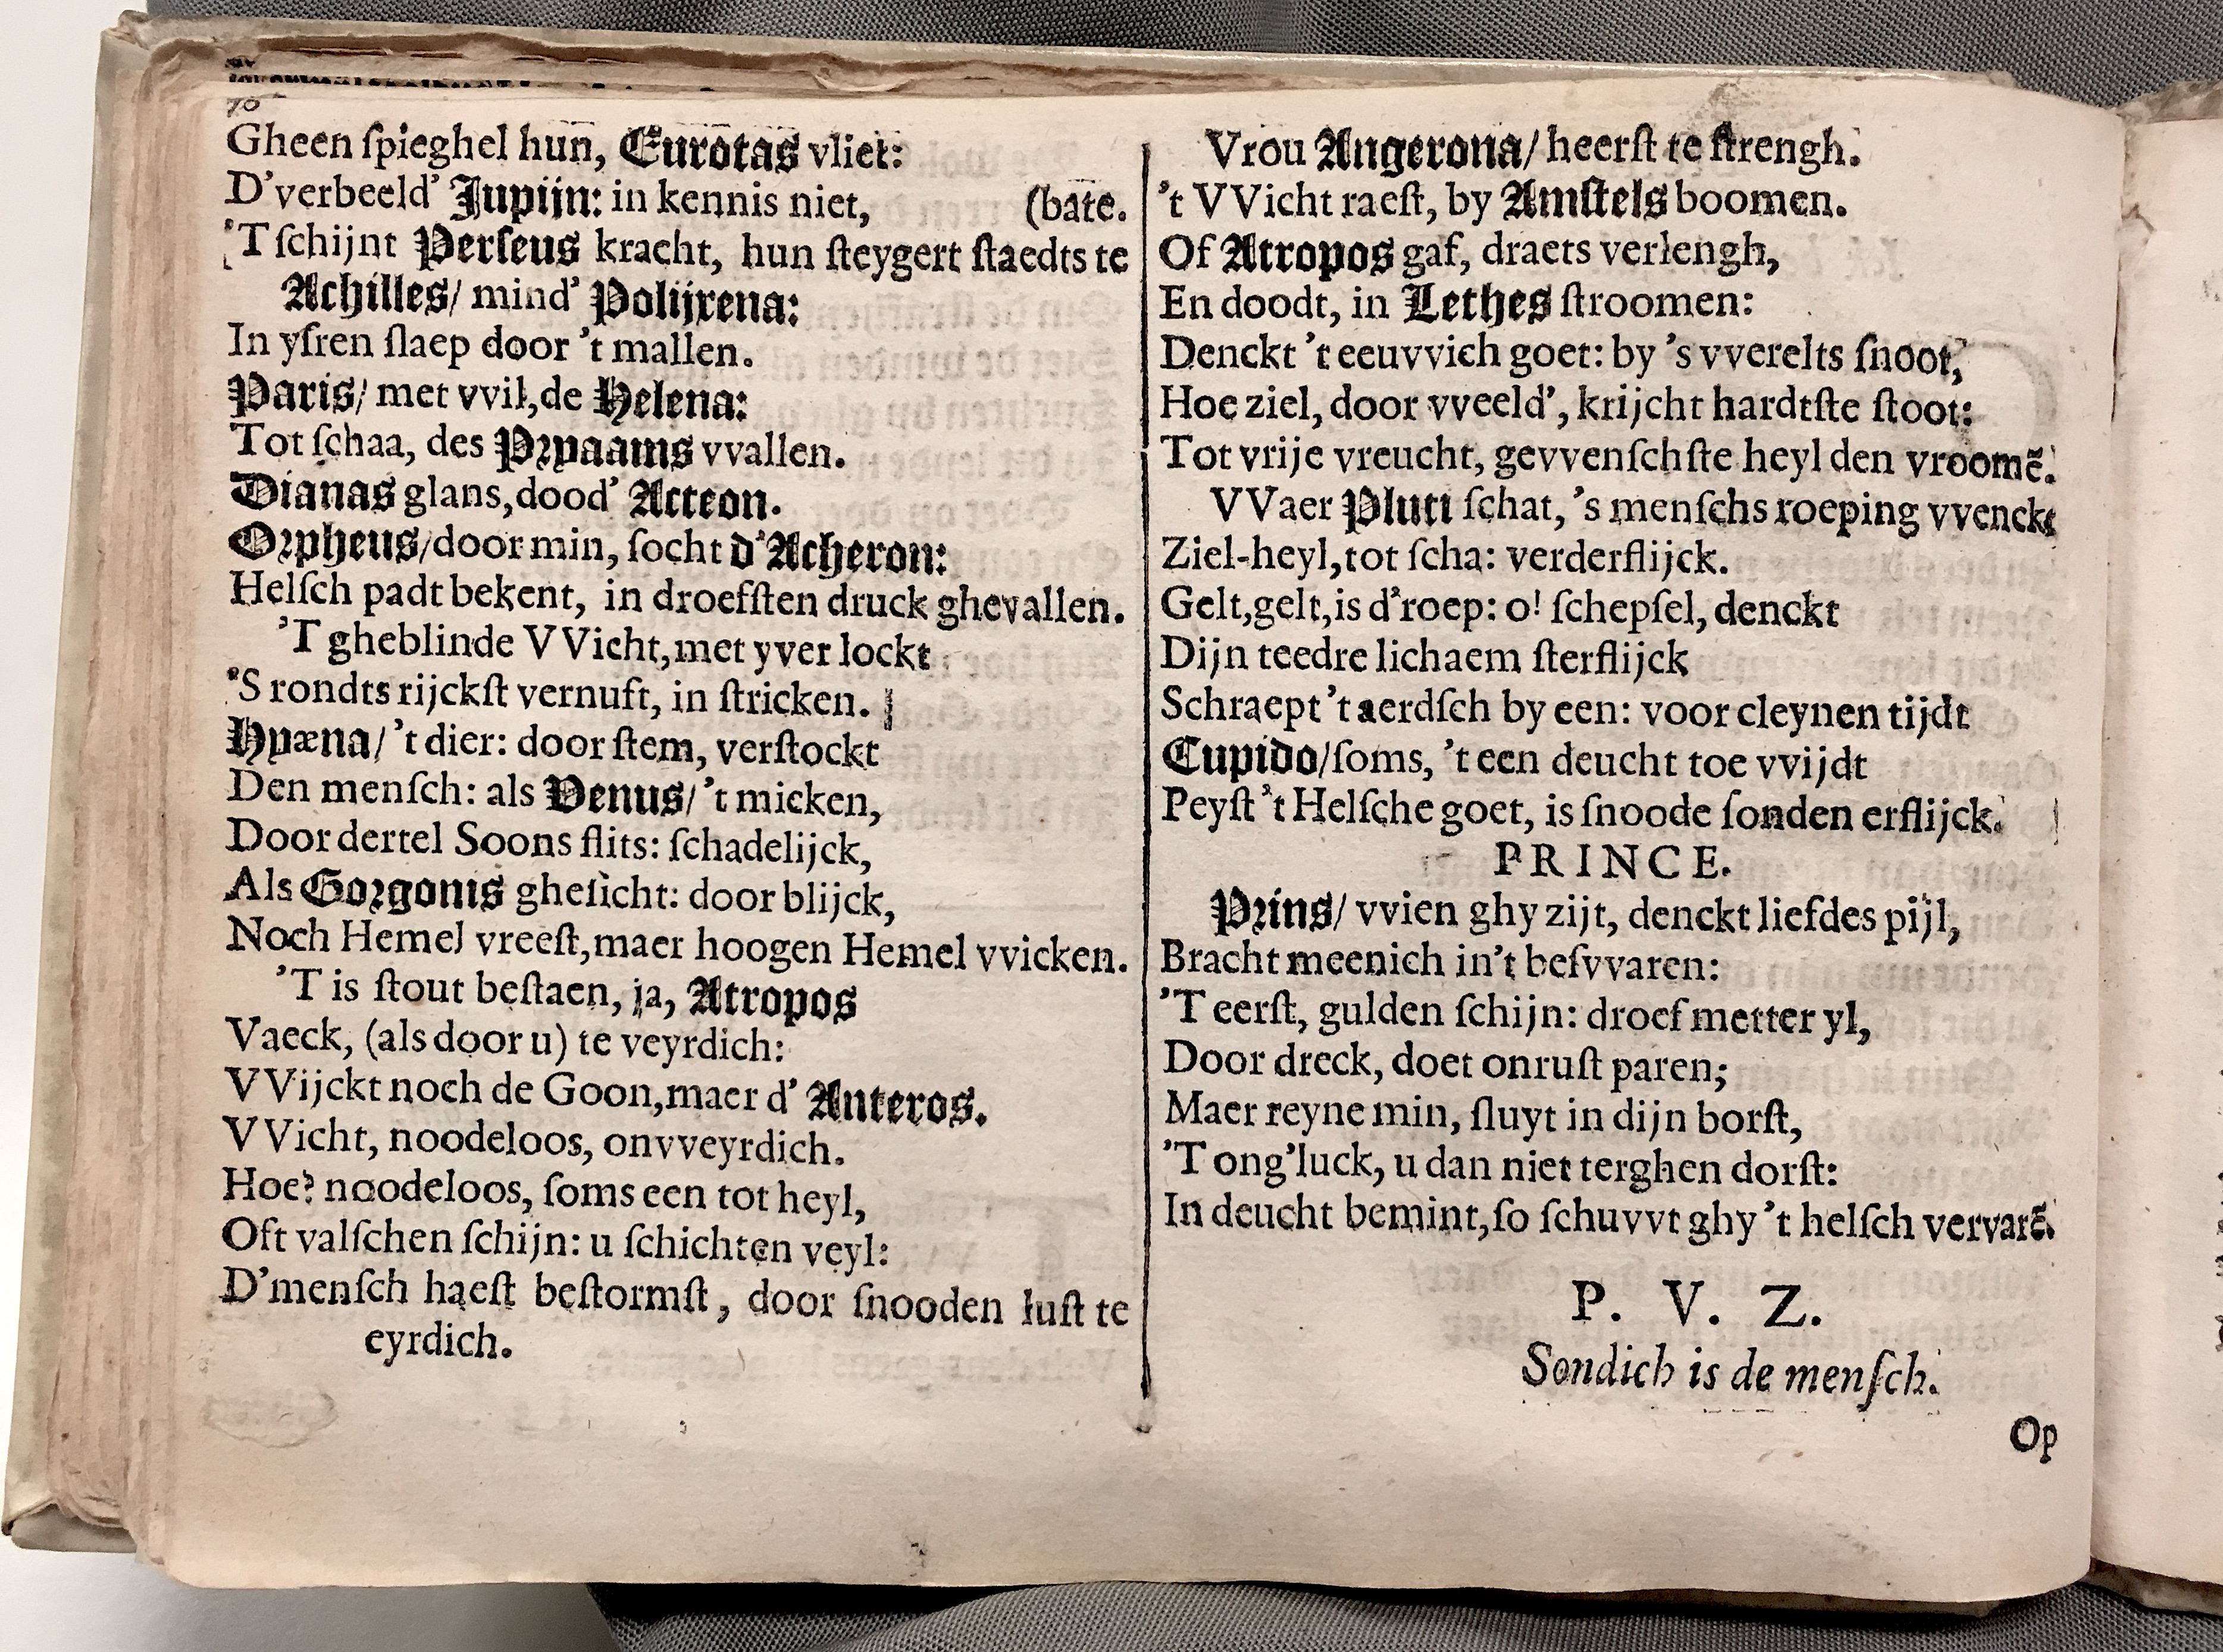 70
Gheen ſpieghel hun, Eurotas vliet:
D'verbeeld' Jupijn: in kennis niet, (bate.
'T ſchijnt Perſeus kracht, hun ſteygert ſtaedts te
Achilles/ mind' Polijxena:
In yſren ſlaep door 't mallen.
Paris/ met vvil, de Helena:
Tot ſchaa, des Prpaams vvallen.
Dianas glans, dood' Acteon.
Orpheus/ door min, ſocht d'Acheron:
Helſch padt bekent, in droefſten druck ghevallen.
'T gheblinde VVicht, met yver lockt
'S rondts rijckſt vernuft, in ſtricken.
Hyæna/ 't dier: door ſtem, verſtockt
Den menſch: als Venus/ 't micken,
Door dertel Soons flits: ſchadelijck,
Als Gorgonis gheſicht: door blijck,
Noch Hemel vreeſt, maer hoogen Hemel vvicken.
'T is ſtout beſtaen, ja, Atropos
Vaeck, (als door u) te veyrdich:
VVijckt noch de Goon, maer d' Anteros.
VVicht, noodeloos, onvveyrdich.
Hoe? noodeloos, ſoms een tot heyl,
Oft valſchen ſchijn: u ſchichten veyl:
D'menſch haeſt beſtormſt, door ſnooden luſt te
eyrdich.
Vrou Angerona/ heerſt te ſtrengh.
't VVicht raeſt, by Amſtels boomen.
Of Atropos gaf, draets verlengh,
En doodt, in Lethes ſtroomen:
Denckt 't eeuvvich goet: by 's vverelts ſnoot,
Hoe ziel, door vveeld', krijcht hardtſte ſtoot:
Tot vrije vreucht, gevvenſchſte heyl den vroomẽ.
VVaer Pluti ſchat, 's menſchs roeping vvenckt
Ziel-heyl, tot ſcha: verderflijck.
Gelt, gelt, is d'roep: o! ſchepſel, denckt
Dijn teedre lichaem ſterflijck
Schraept 't aerdſch by een: voor cleynen tijdt
Cupido/ ſoms, 't een deucht toe vvijdt
Peyſt 't Helſche goet, is ſnoode ſonden erflijck.
PRINCE.
Prins/ vvien ghy zijt, denckt liefdes pijl,
Bracht meenich in't beſvvaren:
'T eerſt, gulden ſchijn: droef metter yl,
Door dreck, doet onruſt paren;
Maer reyne min, ſluyt in dijn borſt,
'T ong'luck, u dan niet terghen dorſt:
In deucht bemint, ſo ſchuvvt ghy 't helſch vervarẽ.
P. V. Z.
Sondich is de menſch.
Op